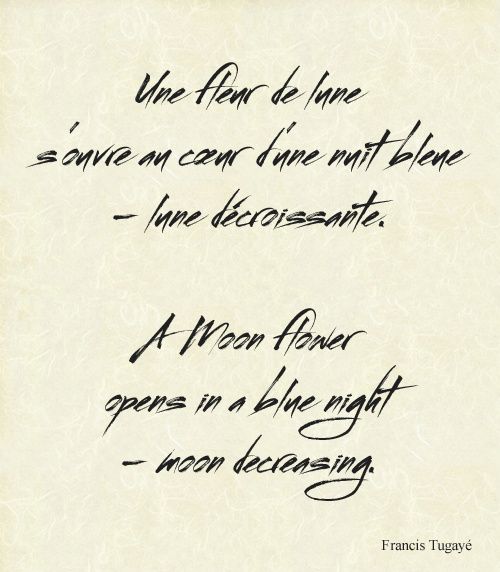 Une fleur de lune
s'ouvre au cœur d'une nuit bleue
– lune décroissante.
A Moon flower
opens in a blue night
– moon decreasing.
Francis Tugayé